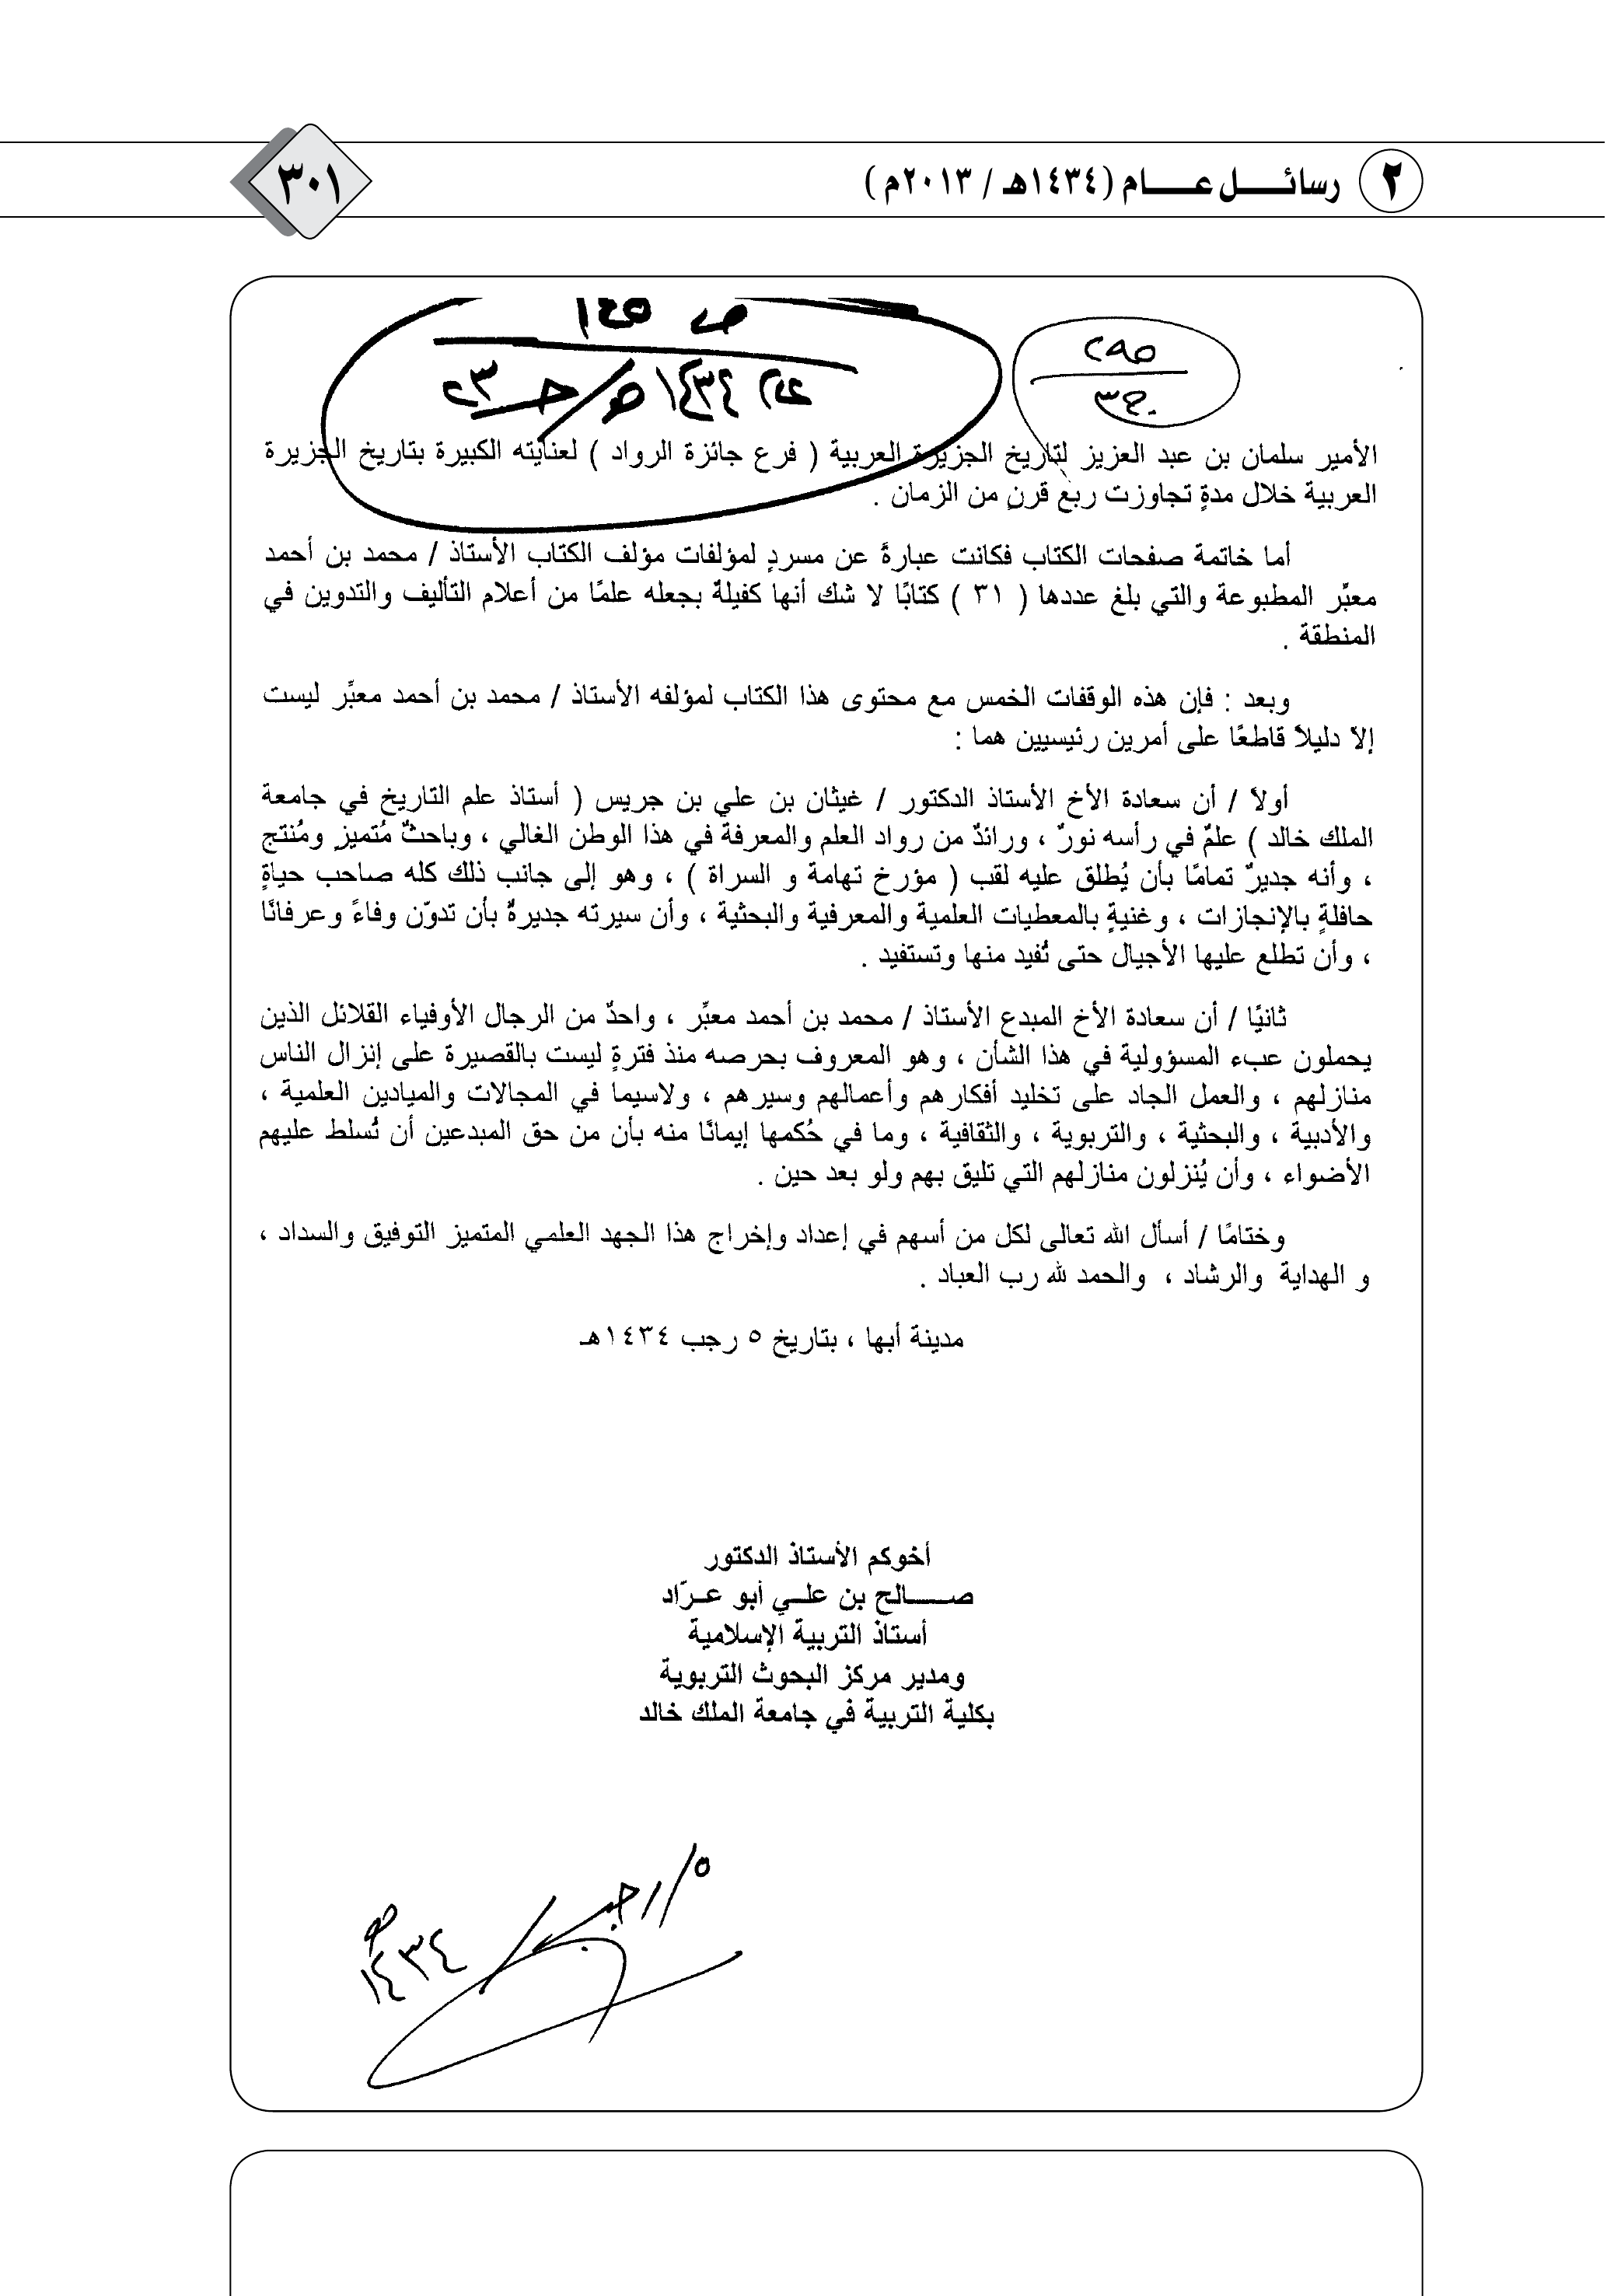 ٢ رسائل عام (١٤٣٤هـ / ٢٠١٣م)
٣٠١
ص ١٤٥
١٤٣٤هـ / جـ ٢٣
ص٢
جـ٣
الأمير سلمان بن عبد العزيز لتاريخ الجزيرة العربية ( فرع جائزة الرواد ) لعنايته الكبيرة بتاريخ الجزيرة
العربية خلال مدةٍ تجاوزت ربع قرنٍ من الزمان .
أما خاتمة صفحات الكتاب فكانت عبارةً عن مسردٍ لمؤلفات مؤلف الكتاب الأستاذ / محمد بن أحمد
معبِّر المطبوعة والتي بلغ عددها ( ٣١ ) كتابًا لا شك أنها كفيلةٌ بجعله علمًا من أعلام التأليف والتدوين في
المنطقة .
وبعد : فإن هذه الوقفات الخمس مع محتوى هذا الكتاب لمؤلفه الأستاذ / محمد بن أحمد معبِّر ليست
إلاّ دليلاً قاطعًا على أمرين رئيسيين هما :
أولاً / أن سعادة الأخ الأستاذ الدكتور / غيثان بن علي بن جريس ( أستاذ علم التاريخ في جامعة
الملك خالد ) علمٌ في رأسه نورٌ ، ورائدٌ من رواد العلم والمعرفة في هذا الوطن الغالي ، وباحثٌ مُتميزٍ ومُنتج
، وأنه جديرٌ تمامًا بأن يُطلق عليه لقب ( مؤرخ تهامة و السراة ) ، وهو إلى جانب ذلك كله صاحب حياةٍ
حافلةٍ بالإنجازات ، وغنيةٍ بالمعطيات العلمية والمعرفية والبحثية ، وأن سيرته جديرةٌ بأن تدوّن وفاءً وعرفانًا
، وأن تطلع عليها الأجيال حتى تُفيد منها وتستفيد .
ثانيًا / أن سعادة الأخ المبدع الأستاذ / محمد بن أحمد معبِّر ، واحدٌ من الرجال الأوفياء القلائل الذين
يحملون عبء المسؤولية في هذا الشأن ، وهو المعروف بحرصه منذ فترةٍ ليست بالقصيرة على إنزال الناس
منازلهم ، والعمل الجاد على تخليد أفكارهم وأعمالهم وسيرهم ، ولاسيما في المجالات والميادين العلمية ،
والأدبية ، والبحثية ، والتربوية ، والثقافية ، وما في حُكمها إيمانًا منه بأن من حق المبدعين أن تُسلط عليهم
الأضواء ، وأن يُنزلون منازلهم التي تليق بهم ولو بعد حين .
وختامًا / أسأل الله تعالى لكل من أسهم في إعداد وإخراج هذا الجهد العلمي المتميز التوفيق والسداد ،
و الهداية والرشاد ، والحمد لله رب العباد .
مدينة أبها ، بتاريخ ٥ رجب ١٤٣٤هـ
أخوكم الأستاذ الدكتور
صـــالح بن علـي أبو عـرّاد
أستاذ التربية الإسلامية
ومدير مركز البحوث التربوية
بكلية التربية في جامعة الملك خالد
٥ / رجب / ١٤٣٤هـ